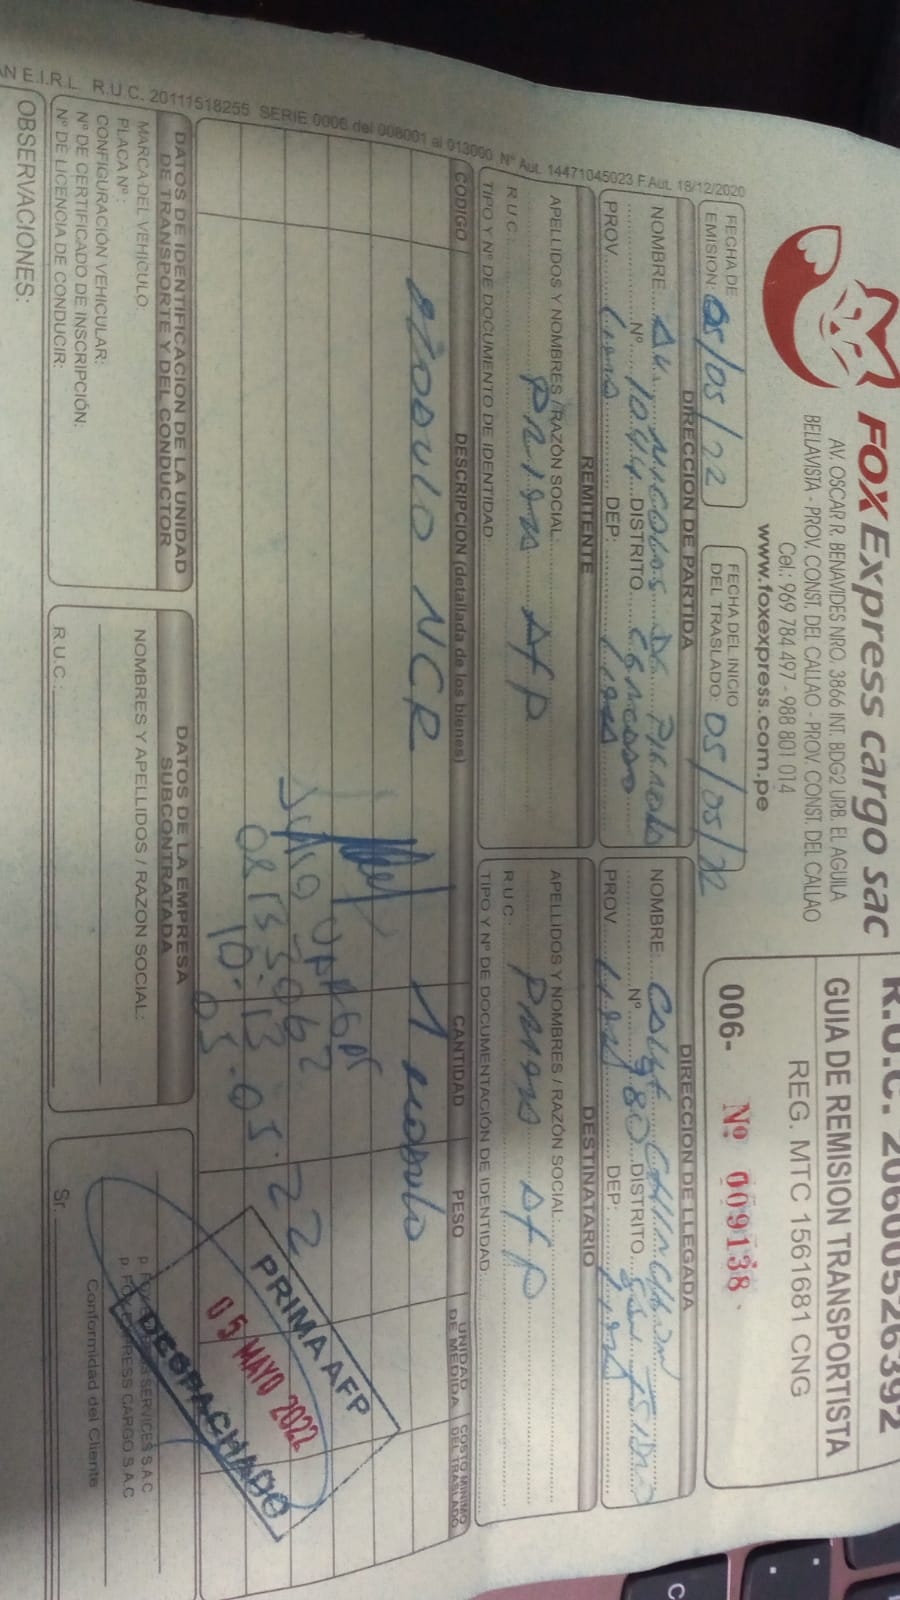 FOX Express cargo sac
AV. OSCAR R. BENAVIDES NRO. 3866 INT. BDG2 URB. EL AGUILA
BELLAVISTA - PROV. CONST. DEL CALLAO - PROV. CONST. DEL CALLAO
Cel.: 969 784 497 - 988 801 014
www.foxexpress.com.pe
R.U.C. 20600526392
GUIA DE REMISION TRANSPORTISTA
REG. MTC 1561681 CNG
006- Nº 009138
FECHA DE EMISION: 05/05/22
FECHA DEL INICIO DEL TRASLADO: 05/05/22
DIRECCION DE PARTIDA
NOMBRE Av. Nicolas De Pierola
Nº 1044 DISTRITO Cercado
PROV. Lima DEP: Lima
DIRECCION DE LLEGADA
NOMBRE: Calle Chinchon
Nº 980 DISTRITO San Isidro
PROV. Lima DEP: Lima
REMITENTE
APELLIDOS Y NOMBRES / RAZÓN SOCIAL:
Prima AFP
R.U.C.:
TIPO Y Nº DE DOCUMENTO DE IDENTIDAD
DESTINATARIO
APELLIDOS Y NOMBRES / RAZÓN SOCIAL:
Prima AFP
R.U.C.:
TIPO Y Nº DE DOCUMENTACIÓN DE IDENTIDAD
CODIGO DESCRIPCION (detallada de los bienes) CANTIDAD PESO UNIDAD DE MEDIDA COSTO MINIMO DEL TRASLADO
MODULO NCR 1 modulo
05.22
PRIMA AFP
05 MAYO 2022
DESPACHADO
DATOS DE IDENTIFICACION DE LA UNIDAD DE TRANSPORTE Y DEL CONDUCTOR
MARCA DEL VEHICULO:
PLACA Nº:
CONFIGURACIÓN VEHICULAR:
Nº DE CERTIFICADO DE INSCRIPCIÓN:
Nº DE LICENCIA DE CONDUCIR:
DATOS DE LA EMPRESA SUBCONTRATADA
NOMBRES Y APELLIDOS / RAZON SOCIAL:
R.U.C.:
SERVICES S.A.C
CARGO S.A.C
Conformidad del Cliente
Sr.
OBSERVACIONES:
E.I.R.L. R.U.C. 20111518255 SERIE 0006 del 008001 al 013000 Nº Aut. 14471045023 F.Aut. 18/12/2020